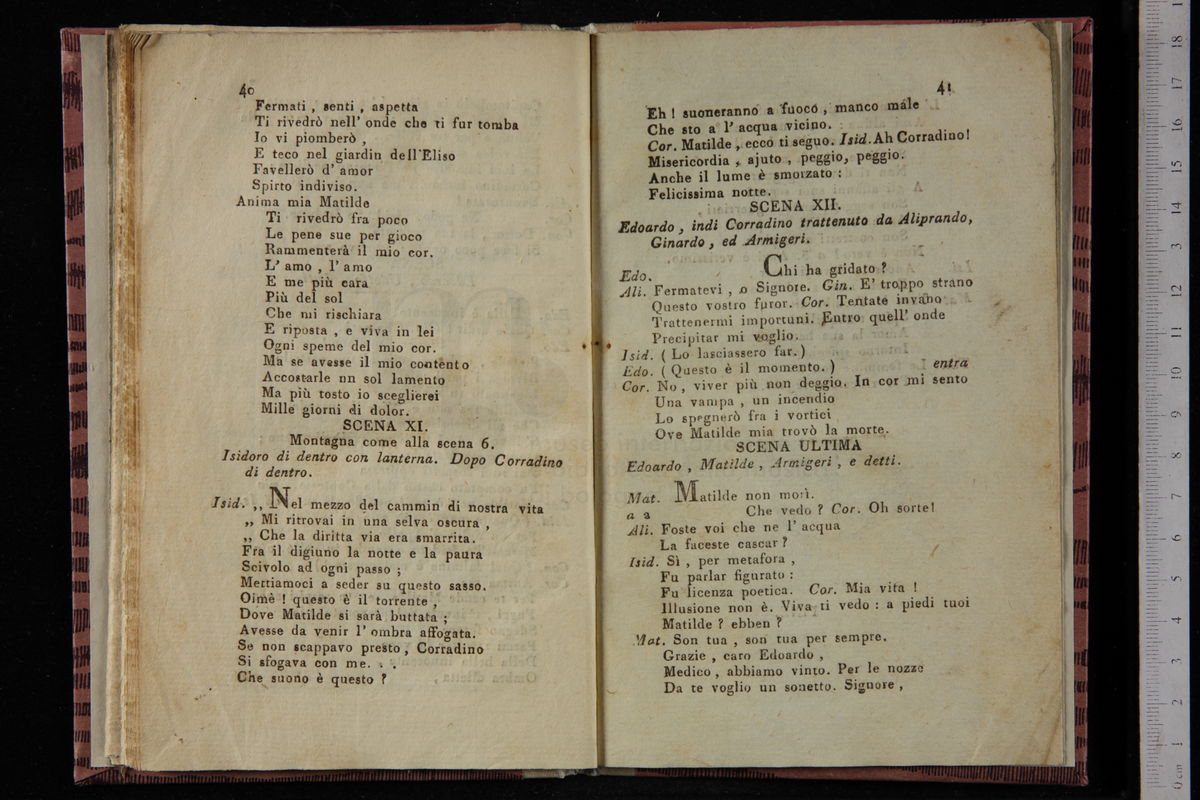 40
Fermati , senti , aspetta
Ti rivedrò nell' onde che ti fur tomba
Io vi piomberò ,
E teco nel giardin dell'Eliso
Favellerò d' amor
Spirto indiviso.
Anima mia Matilde
Ti rivedrò fra poco
Le pene sue per gioco
Rammenterà il mio cor.
L' amo , l' amo
E me più cara
Più del sol
Che mi rischiara
E riposta , e viva in lei
Ogni speme del mio cor.
Ma se avesse il mio contento
Accostarle nn sol lamento
Ma più tosto io sceglierei
Mille giorni di dolor.
SCENA XI.
Montagna come alla scena 6.
Isidoro di dentro con lanterna. Dopo Corradino
di dentro.
Isid. ,, Nel mezzo del cammin di nostra vita
,, Mi ritrovai in una selva oscura ,
,, Che la diritta via era smarrita.
Fra il digiuno la notte e la paura
Scivolo ad ogni passo ;
Mettiamoci a seder su questo sasso.
Oimè ! questo è il torrente ,
Dove Matilde si sarà buttata ;
Avesse da venir l' ombra affogata.
Se non scappavo presto , Corradino
Si sfogava con me. . .
Che suono è questo ?
41
Eh ! suoneranno a fuoco , manco male
Che sto a l' acqua vicino.
Cor. Matilde , ecco ti seguo. Isid. Ah Corradino!
Misericordia , ajuto , peggio, peggio.
Anche il lume è smorzato :
Felicissima notte.
SCENA XII.
Edoardo , indi Corradino trattenuto da Aliprando,
Ginardo , ed Armigeri.
Edo. Chi ha gridato ?
Ali. Fermatevi , o Signore. Gin. E' troppo strano
Questo vostro furor. Cor. Tentate invano
Trattenermi importuni. Entro quell' onde
Precipitar mi voglio.
Isid. ( Lo lasciassero far. )
Edo. ( Questo è il momento. ) entra
Cor. No , viver più non deggio. In cor mi sento
Una vampa , un incendio
Lo spegnerò fra i vortici
Ove Matilde mia trovò la morte.
SCENA ULTIMA
Edoardo , Matilde , Armigeri , e detti.
Mat. Matilde non morì.
a 2 Che vedo ? Cor. Oh sorte!
Ali. Foste voi che ne l' acqua
La faceste cascar ?
Isid. Sì , per metafora ,
Fu parlar figurato :
Fu licenza poetica. Cor. Mia vita !
Illusione non è. Viva ti vedo : a piedi tuoi
Matilde ? ebben ?
Mat. Son tua , son tua per sempre.
Grazie , caro Edoardo ,
Medico , abbiamo vinto. Per le nozze
Da te voglio un sonetto. Signore ,
0 cm 1 2 3 4 5 6 7 8 9 10 11 12 13 14 15 16 17 18